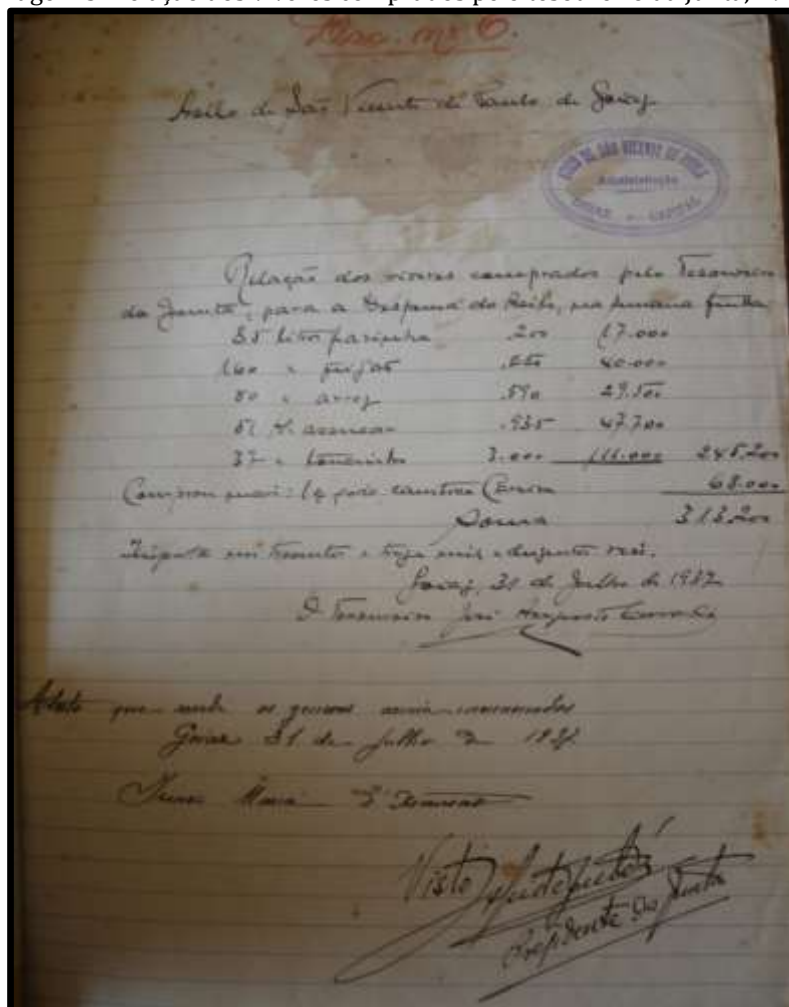 Doc. nº 6.
Asilo de São Vicente de Paulo de Goiaz
ASILO DE SÃO VICENTE DE PAULO
Administração
GOIAZ - CAPITAL
Relação dos viveres comprados pelo Tesoureiro
da Junta, para a Despensa do Asilo, na semana finda
85 litros farinha .200 17.000
160 " feijão 40.000
50 " arroz .590 29.500
51 k. assucar .935 47.700
37 " toucinho 3.000 111.000 245.200
Comprou mais: 68.000
Soma 313.200
Importa em trezentos e treze mil e duzentos reis.
Goiaz, 31 de Julho de 1937
O Tesoureiro José Augusto
que recebi os generos acima mencionados
Goiaz 31 de Julho de 1937
Maria
Visto
Presidente da Junta